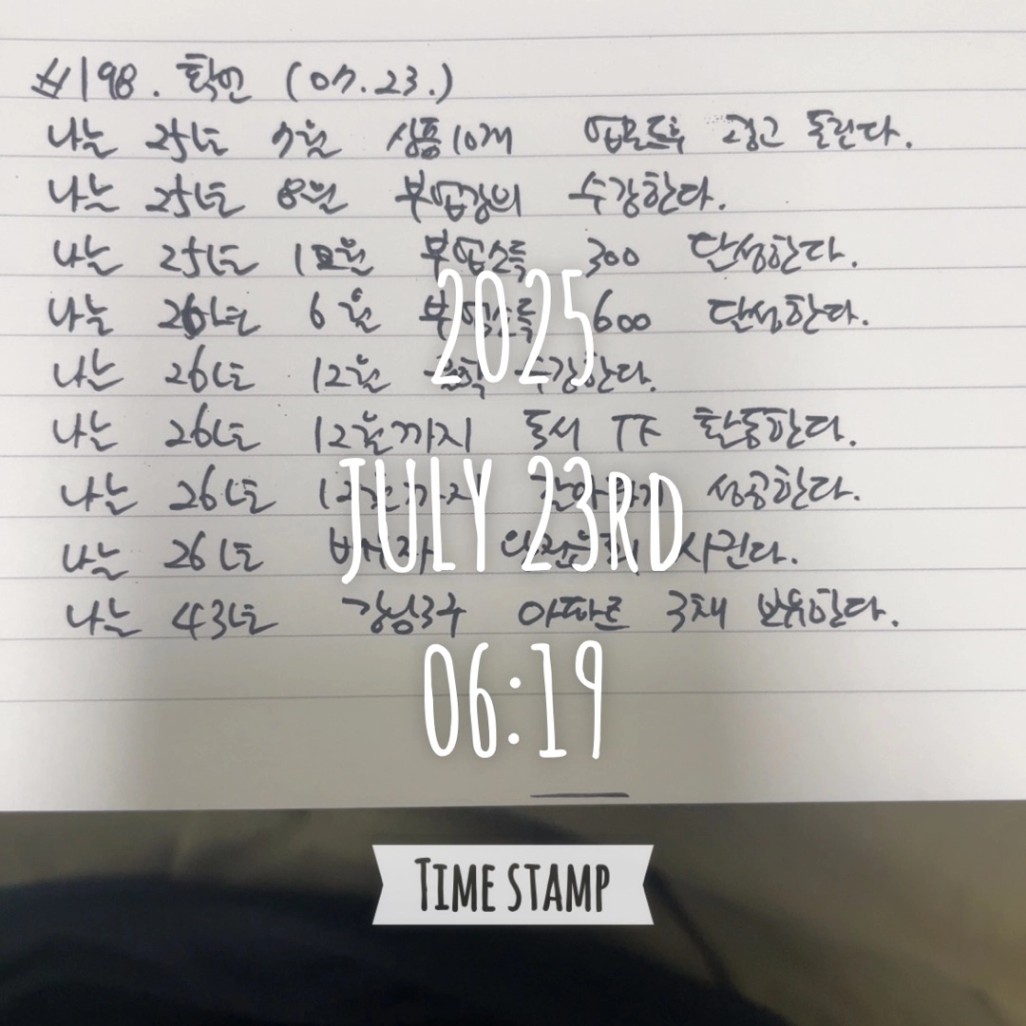 #198. 확언 (07.23.)
나는 25년 7월 상품 10개 업로드후 광고 돌린다.
나는 25년 8월 부업강의 수강한다.
나는 25년 12월 부업소득 300 달성한다.
나는 26년 6월 부업소득 600 달성한다.
나는 26년 12월 수강한다.
나는 26년 12월까지 독서 TF 활동한다.
나는 26년 12월까지 성공한다.
나는 26년 사귄다.
나는 43년 강남3구 아파트 3채 보유한다.
2025
JULY 23RD
06:19
TIME STAMP